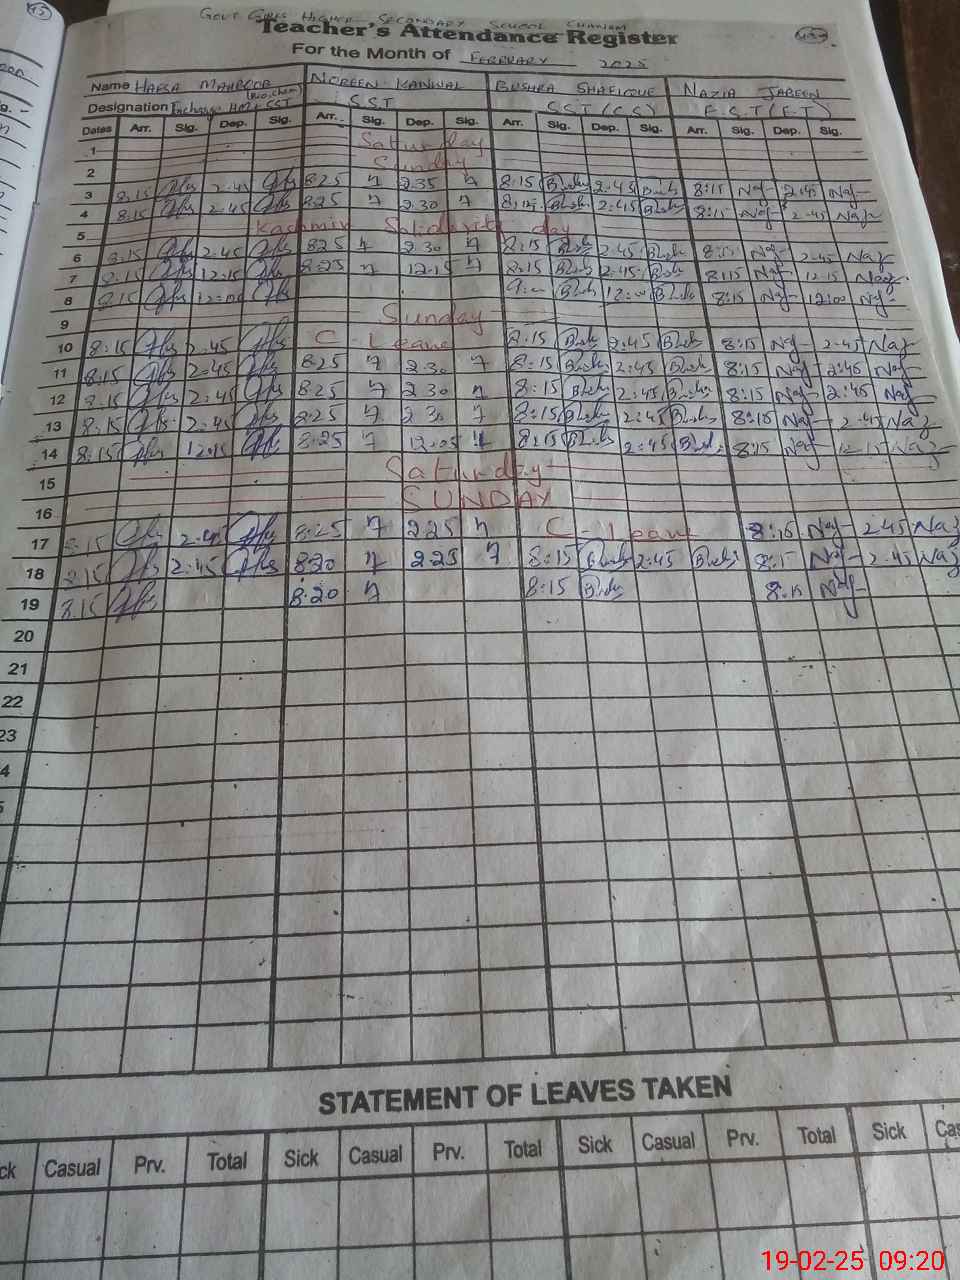 GOVT GIRLS HIGHER SECONDARY SCHOOL
Teacher's Attendance Register
For the Month of FEBRUARY 2025
Name HAFSA MAHBOOB NOREEN KANWAL BUSHRA SHAFIQUE NAZIA JABEEN
Designation SST S.S.T S.S.T (C.S)
Dates Arr. Sig. Dep. Sig. Arr. Sig. Dep. Sig. Arr. Sig. Dep. Sig. Arr. Sig. Dep. Sig.
1 Saturday
2 Sunday
3 8:15 2:45 8:25 2:35 8:15 Bush 2:45 Bush 8:15 Naz 2:45 Naz
4 8:15 2:45 8:25 2:30 8:15 Bush 2:45 Bush 8:15 Naz 2:45 Naz
5 Kashmir Solidarity day
6 8:15 2:45 825 2:30 8:15 Bush 2:45 Bush 8:15 Naz 2:45 Naz
7 8:15 12:15 8:25 12:15 8:15 Bush 2:45 Bush 8:15 Naz 12:15 Naz
8 8:15 12:00 Bush 12:00 Bush 8:15 Naz 12:00 Naz
9 Sunday
10 8:15 2:45 C-Leave 8:15 Bush 2:45 Bush 8:15 Naz 2:45 Naz
11 8:15 2:45 825 2:30 8:15 Bush 2:45 Bush 8:15 Naz 2:45 Naz
12 8:15 2:45 8:25 2:30 8:15 Bush 2:45 Bush 8:15 Naz 2:45 Naz
13 8:15 2:45 8:25 2:30 8:15 Bush 2:45 Bush 8:15 Naz 2:45 Naz
14 8:15 12:15 8:25 12:05 8:15 Bush 2:45 Bush 8:15 Naz 12:15 Naz
15 Saturday
16 SUNDAY
17 8:15 2:45 8:25 2:25 C-Leave 8:15 Naz 2:45 Naz
18 8:15 2:45 8:20 2:25 8:15 Bush 2:45 Bush 8:15 Naz 2:45 Naz
19 8:15 8:20 8:15 Bush 8:15 Naz
20
21
22
23
4
STATEMENT OF LEAVES TAKEN
ck Casual Prv. Total Sick Casual Prv. Total Sick Casual Prv. Total Sick Cas
19-02-25 09:20